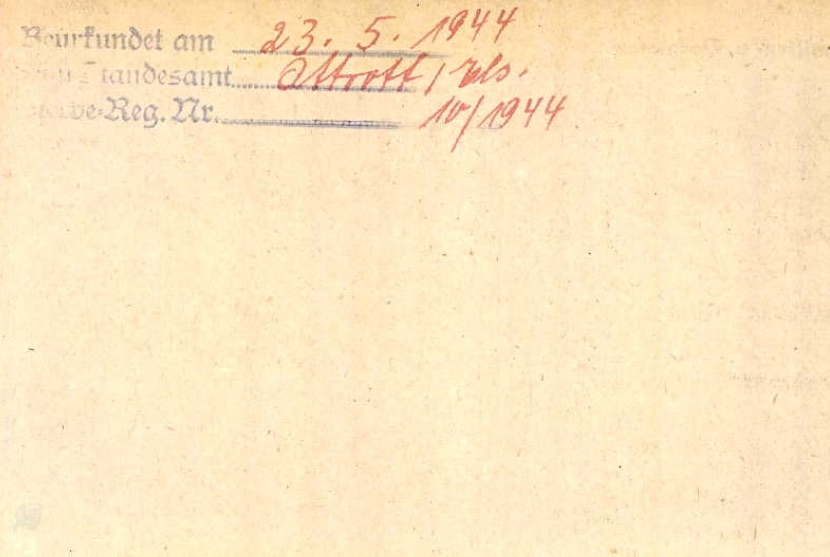 Beurkundet am 23. 5. 1944
Standesamt Ottrott / Els.
Sterbe-Reg. Nr. 10/1944